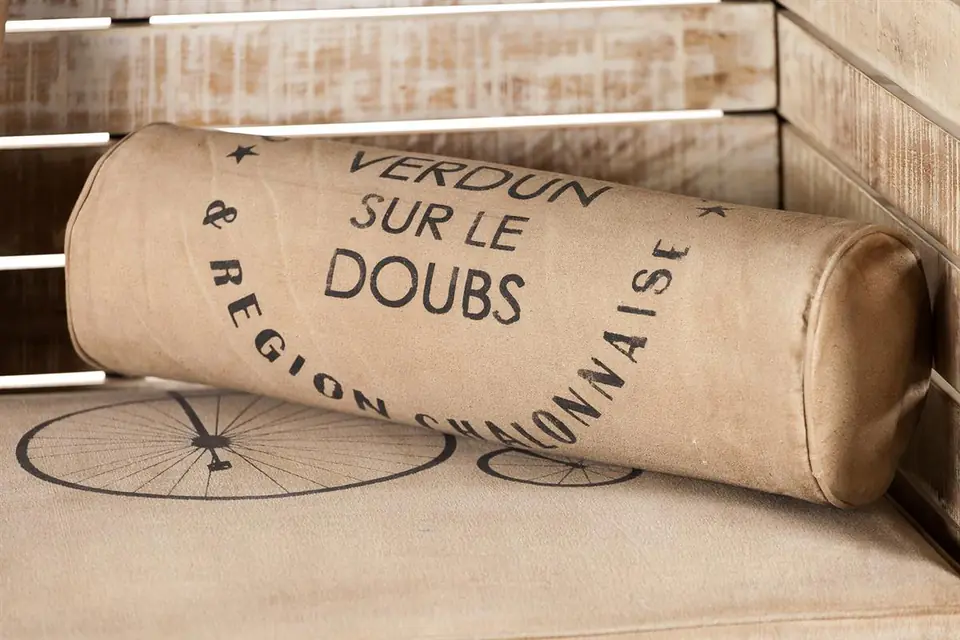 VERDUN
SUR LE
DOUBS
& REGION CHALONNAISE